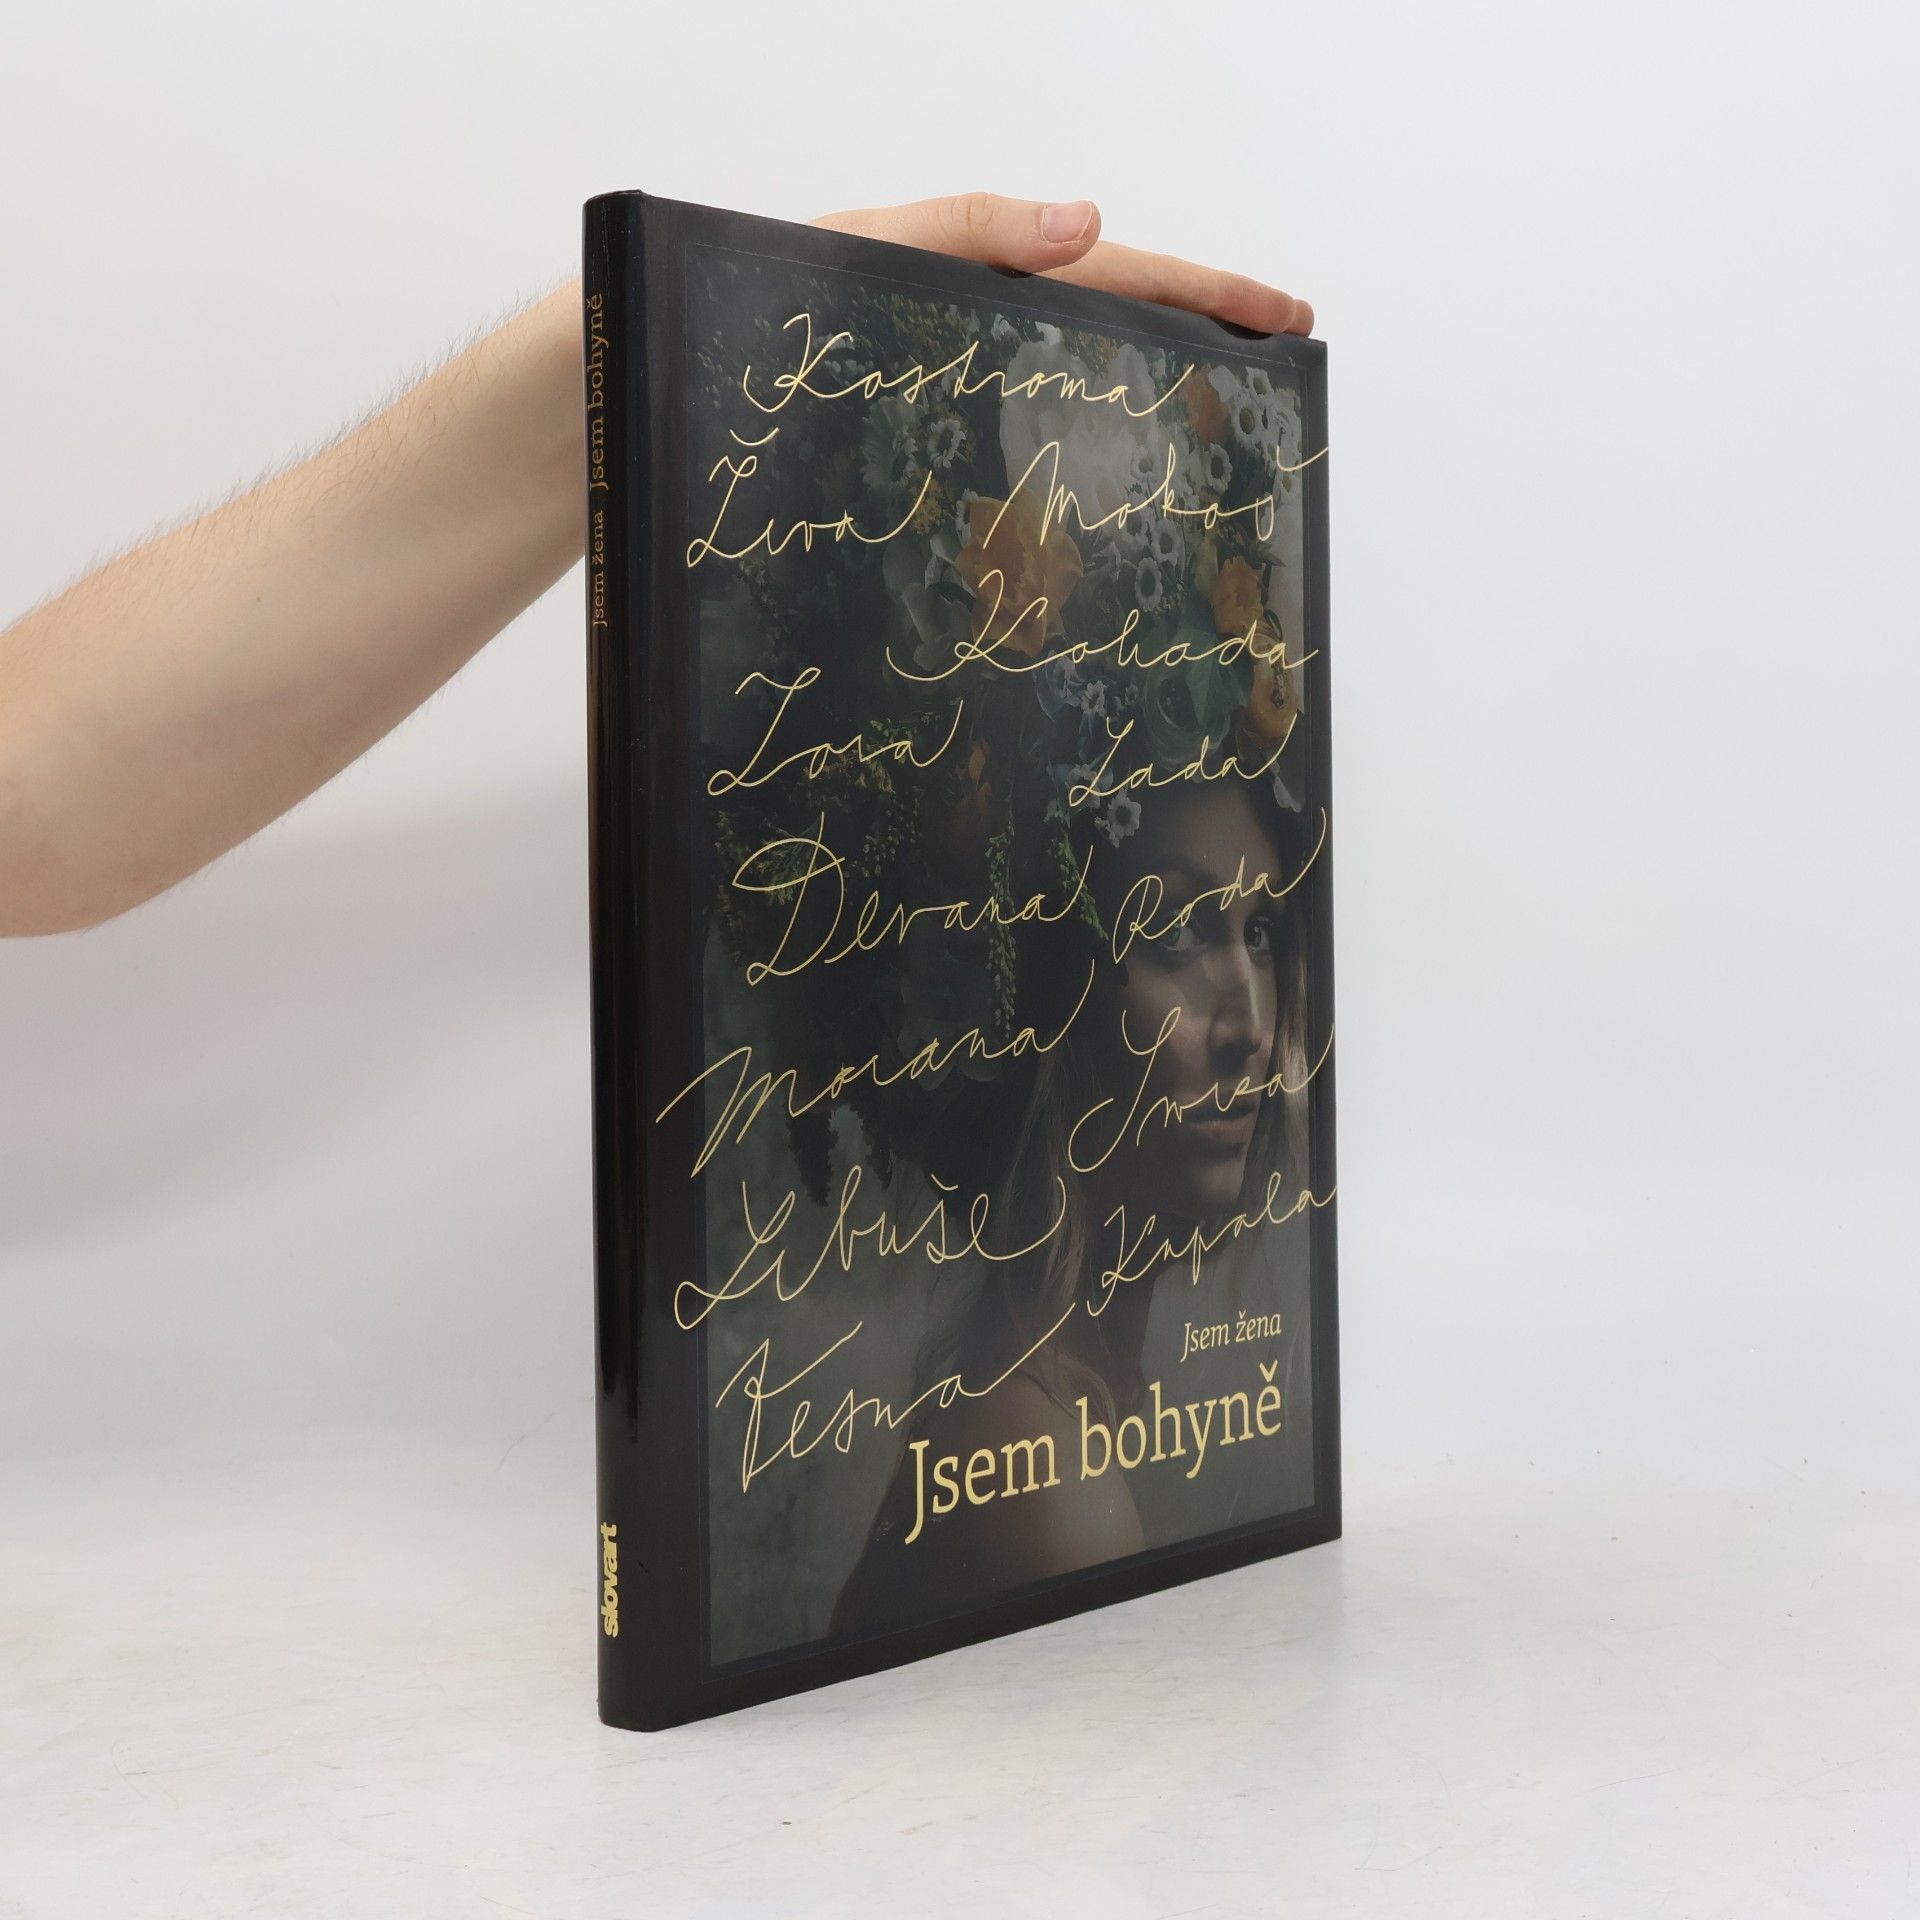 Kostroma
Živa Mokoš
Kolada
Zora Lada
Devana Roda
Morana
Libuše Kupala
Vesna
Jsem žena
Jsem bohyně
Jsem žena Jsem bohyně
slovart